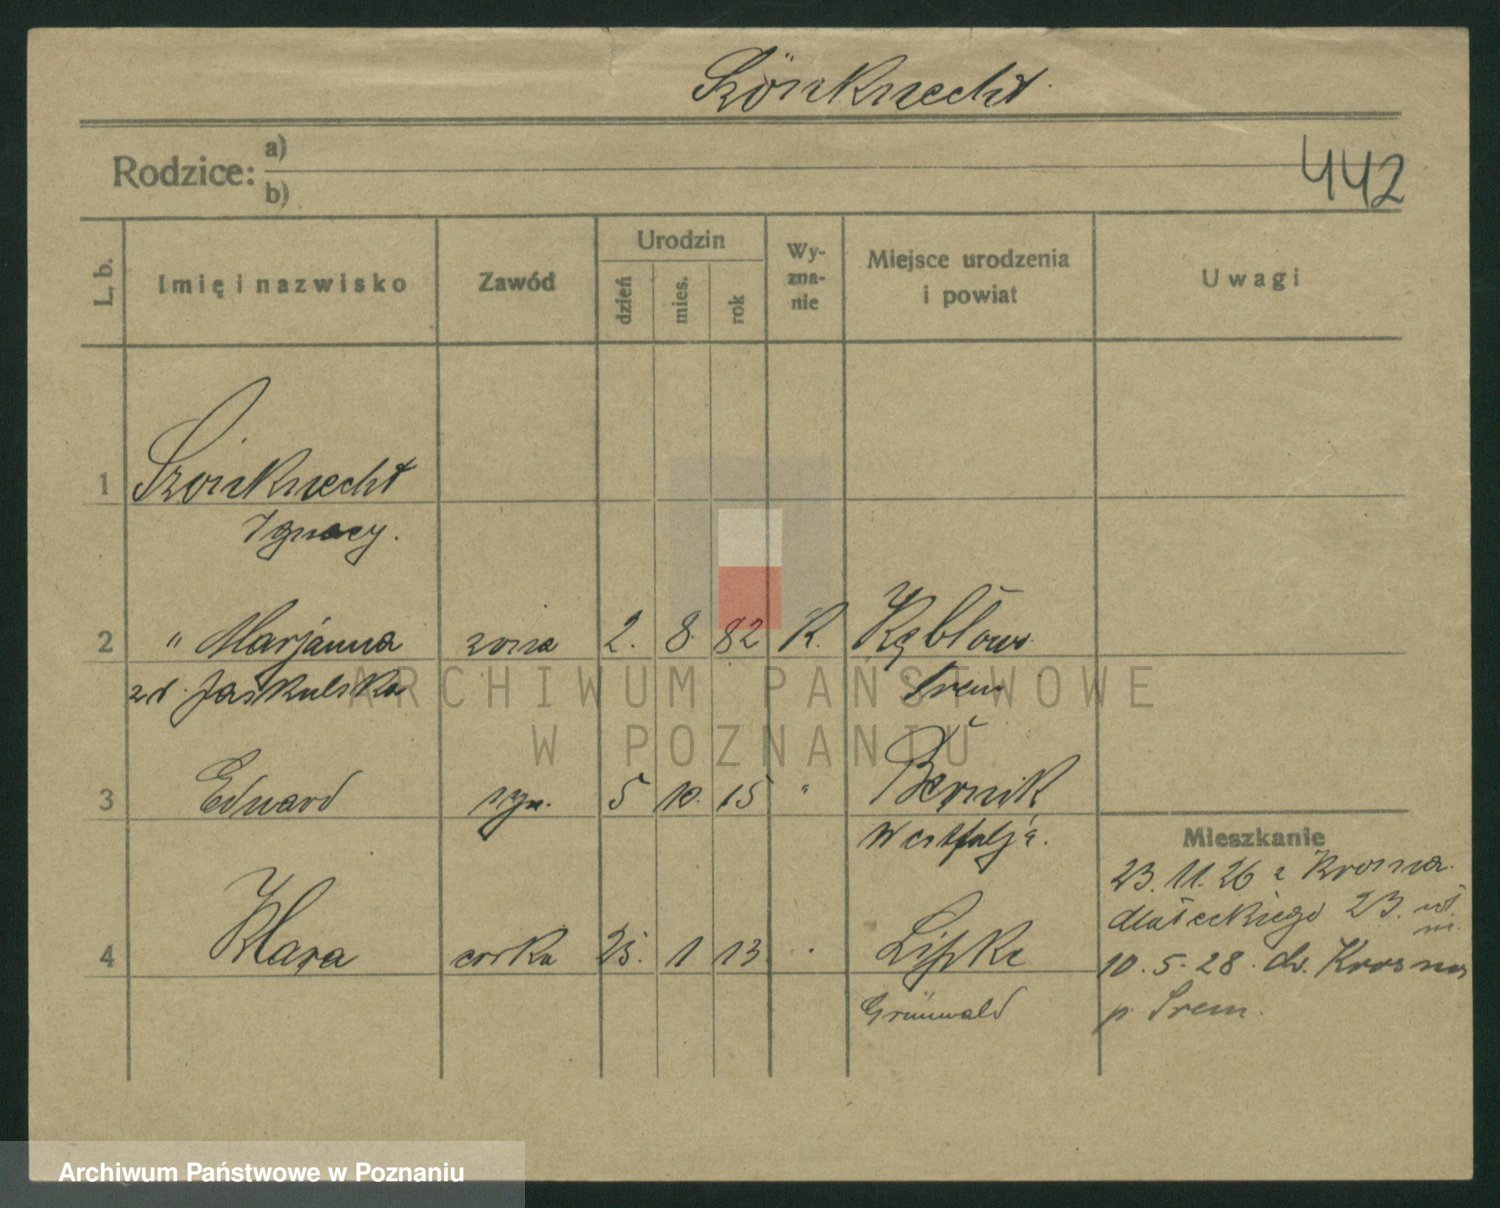 Szönknecht
Rodzice: a)
b)
442
L. b.
Imię i nazwisko
Zawód
Urodzin
dzień
mies.
rok
Wy-
zna-
nie
Miejsce urodzenia
i powiat
Uwagi
1 Szönknecht
Ignacy.
2 " Marjanna żona 2. 8. 82 K. Kębłowo
zd. Jaskulska Śrem
ARCHIWUM PAŃSTWOWE
W POZNANIU
3 Edward syn. 5 10. 15 "
Westfalja.
Mieszkanie
23.11.26 z Krosna
23.
4 Klara corka 25. 1 13 "
10.5.28. do Krosna
Grünwald
p. Śrem.
Archiwum Państwowe w Poznaniu